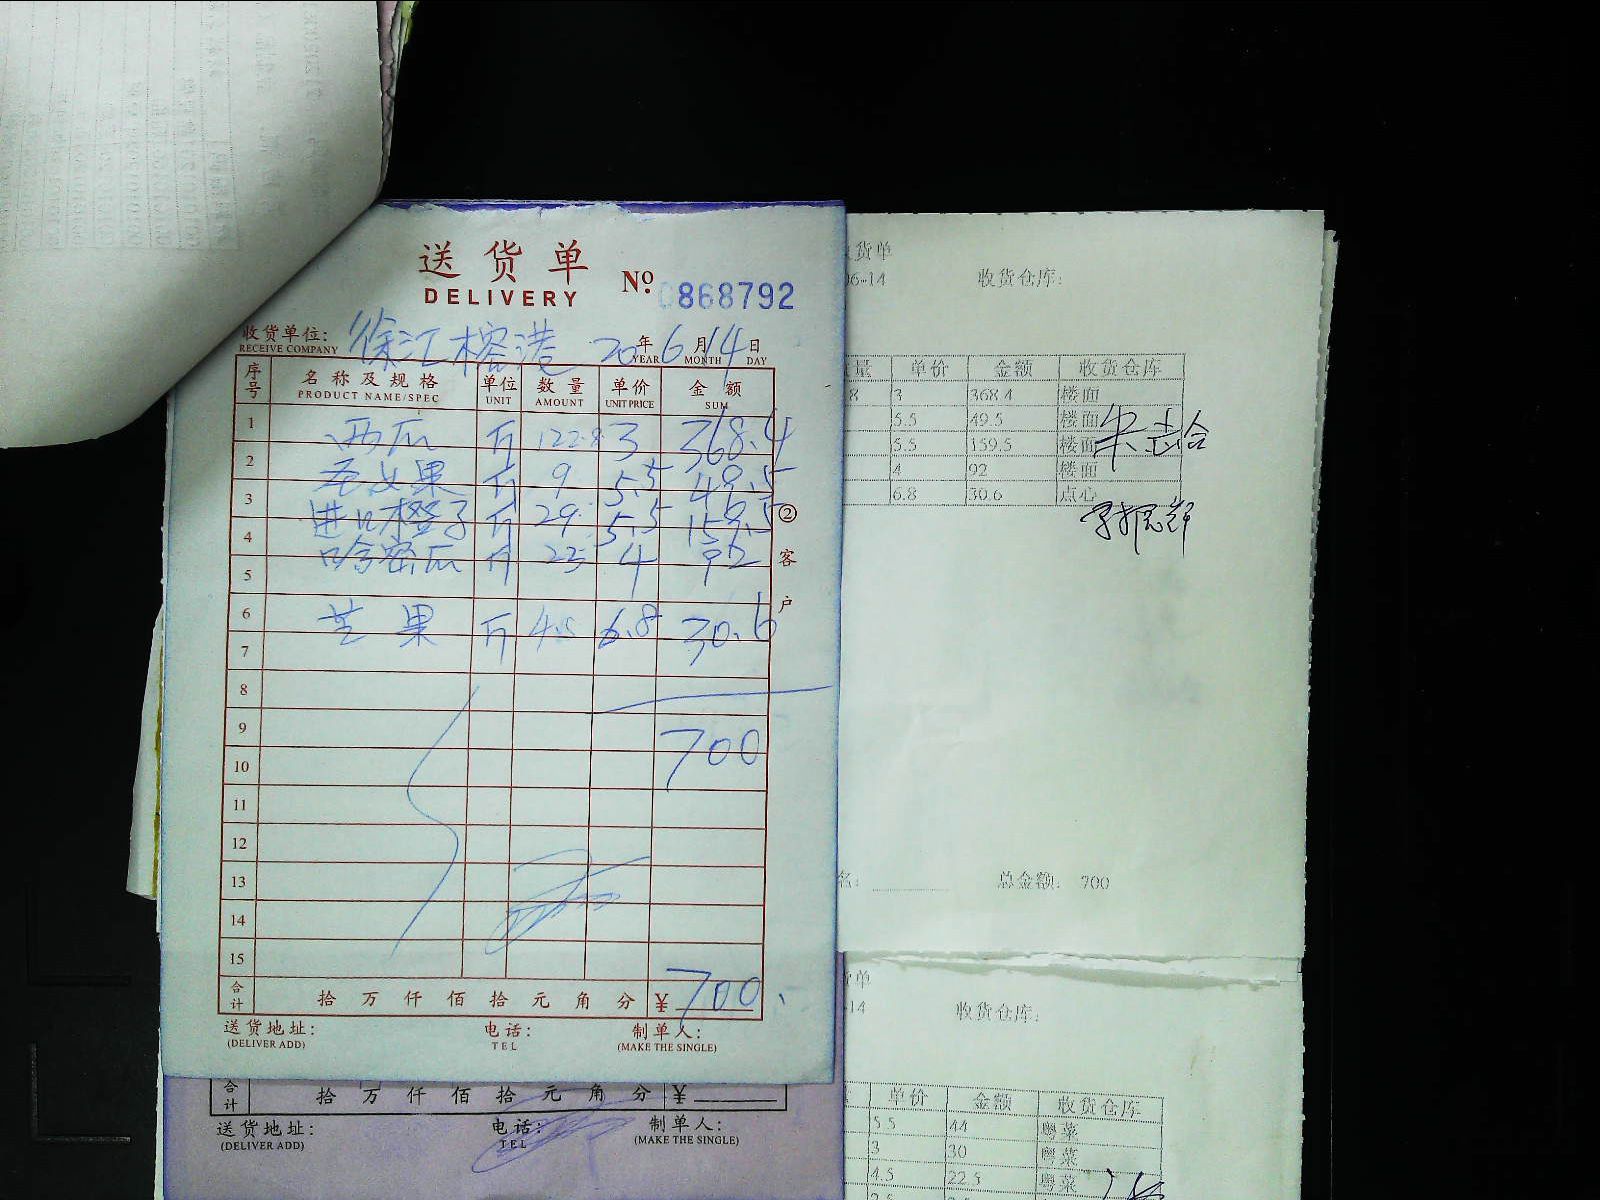 送货单
DELIVERY
No 0868792
收货单位: 徐汇榕港 20年6月14日
RECEIVE COMPANY YEAR MONTH DAY
序号 名称及规格 单位 数量 单价 金额
PRODUCT NAME/SPEC UNIT AMOUNT UNIT PRICE SUM
1 西瓜 斤 122.8 3 368.4
2 圣女果 斤 9 5.5 49.5
3 进口橙子 斤 29 5.5 159.5
4 哈密瓜 斤 23 4 92
5
6 芒果 斤 4.5 6.8 30.6
7
8
9 700
10
11
12
13
14
15
合计 拾 万 仟 佰 拾 元 角 分 ¥ 700
送货地址: 电话: 制单人:
(DELIVER ADD) TEL (MAKE THE SINGLE)
② 客户
合计 拾 万 仟 佰 拾 元 角 分 ¥
送货地址: 电话: 制单人:
(DELIVER ADD) TEL (MAKE THE SINGLE)
货单
06-14 收货仓库:
量 单价 金额 收货仓库
8 3 368.4 楼面
5.5 49.5 楼面
5.5 159.5 楼面
4 92 楼面
6.8 30.6 点心
名: 总金额: 700
货单
-14 收货仓库:
单价 金额 收货仓库
5.5 44 粤菜
3 30 粤菜
4.5 22.5 粤菜